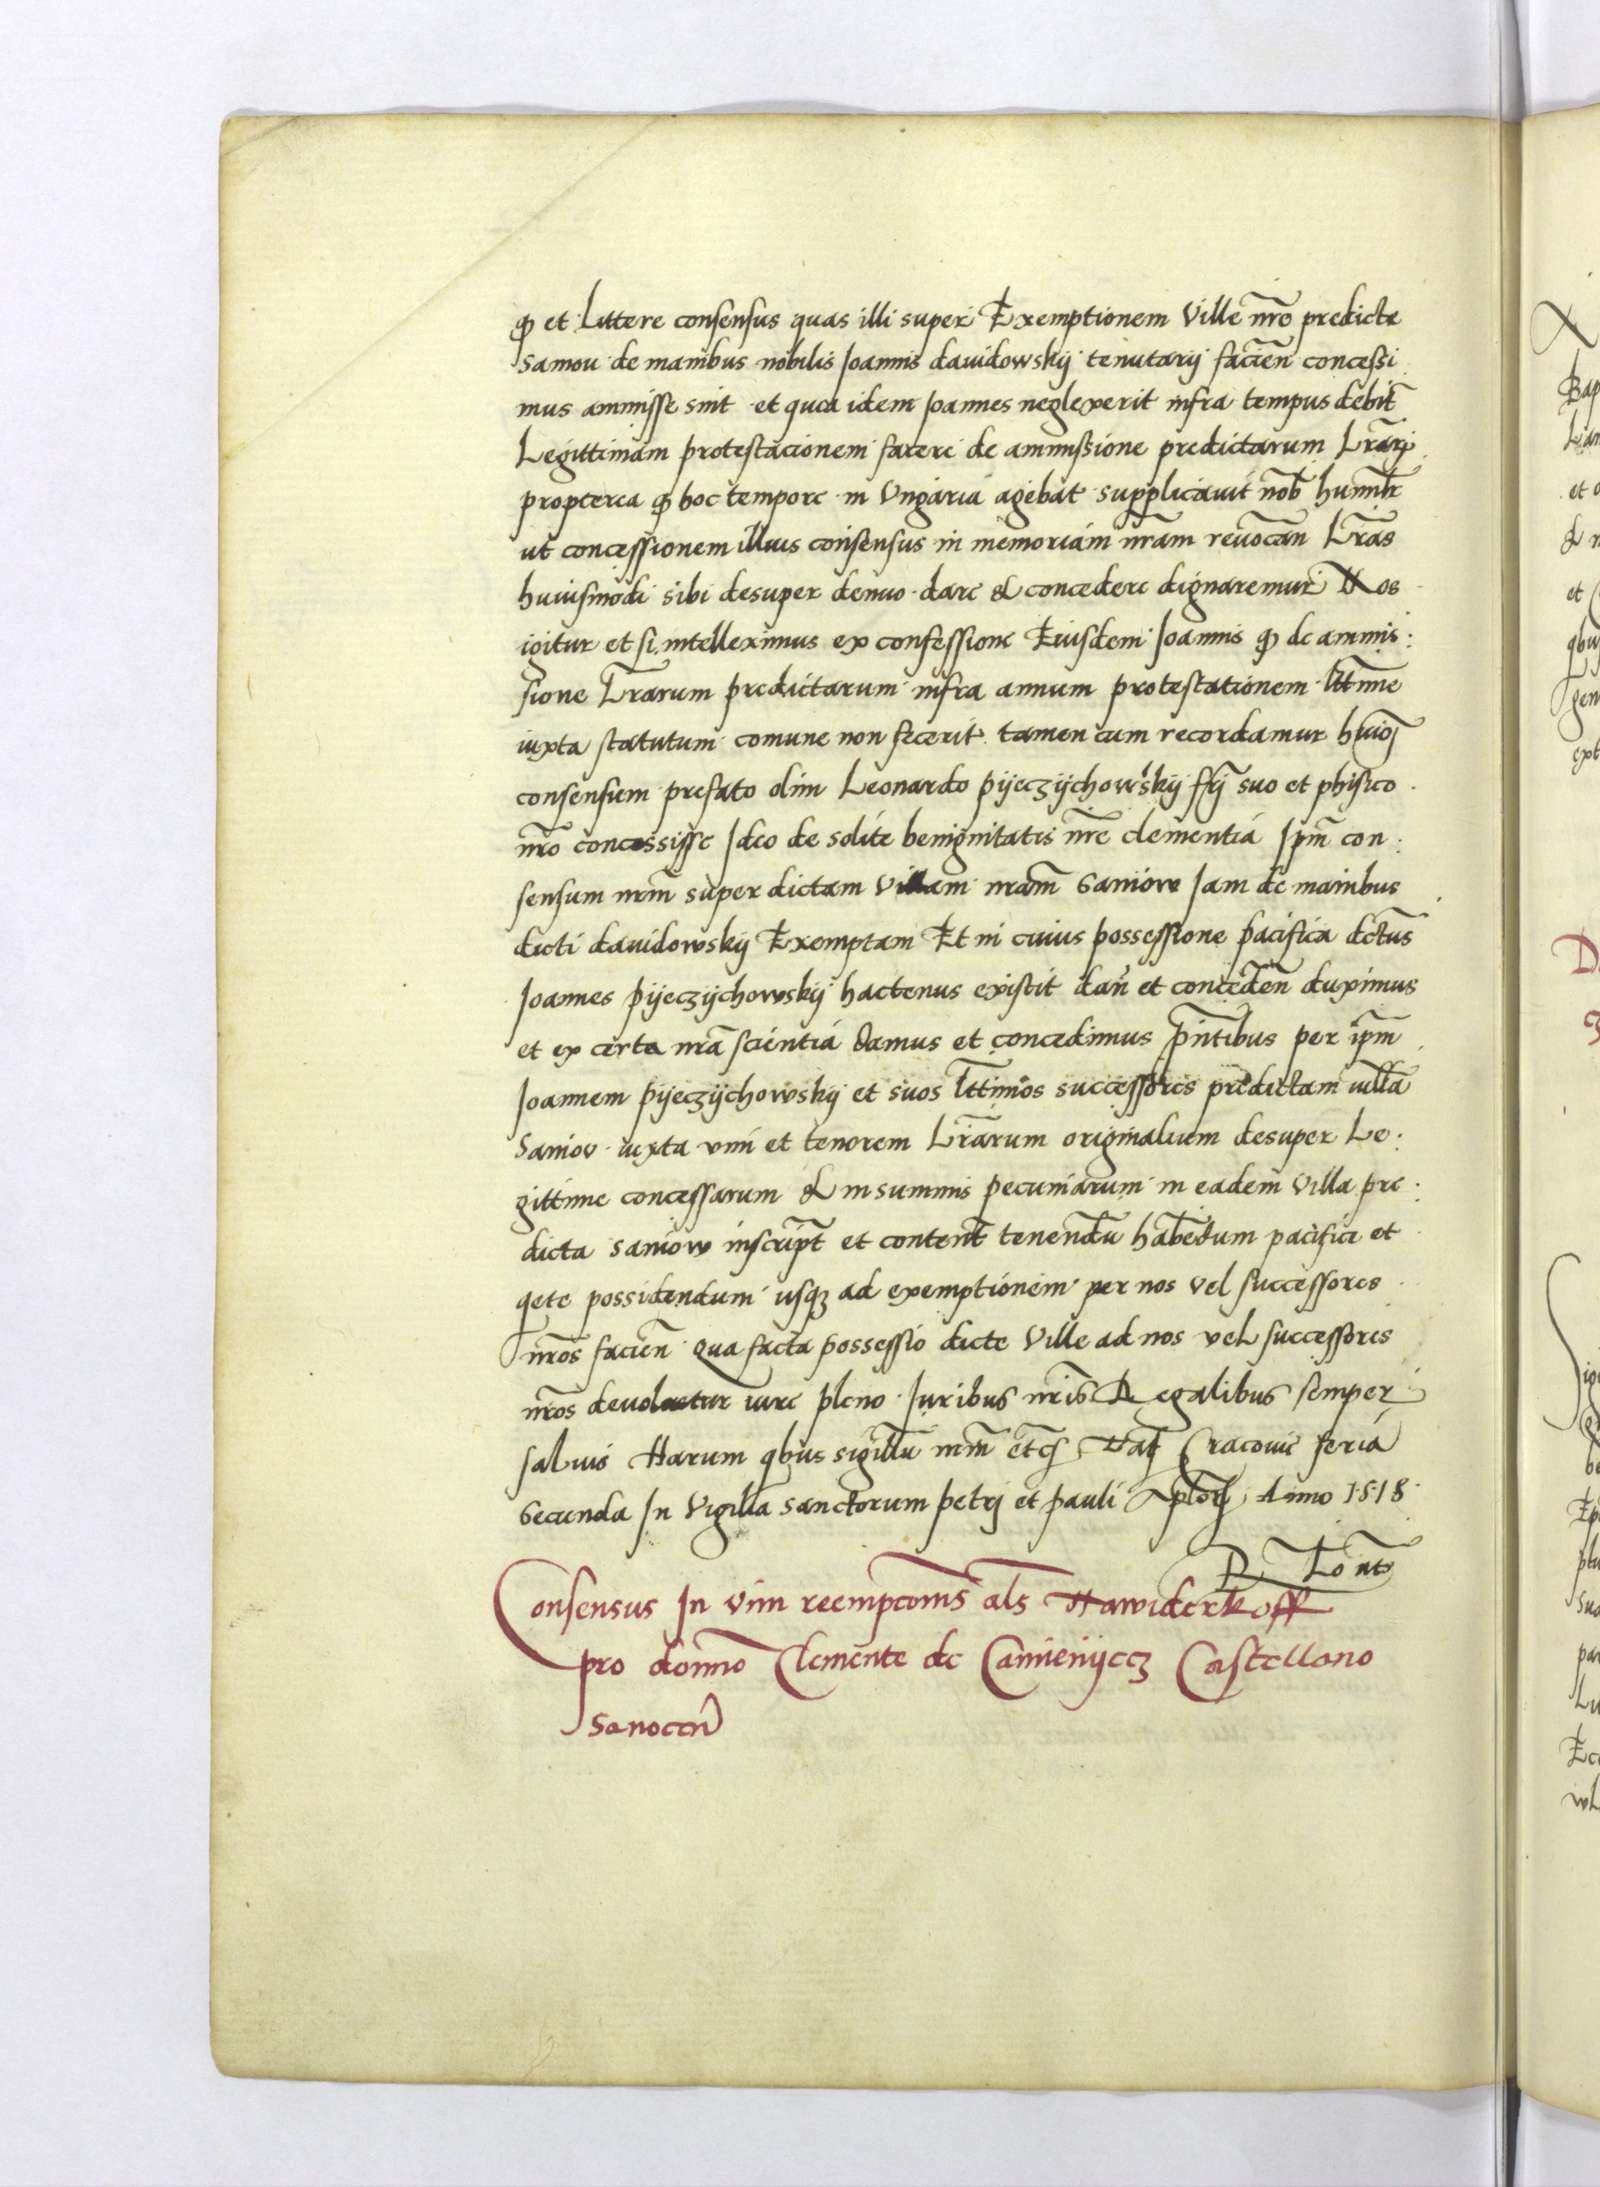 ꝙ et Littere consensus quas illi super Exemptionem Ville nrẽ predicte
Samou de manibus nobilis Joannis davidowskÿ tenutarÿ facieñ concessi
mus ammisse sint et quia idem Joannes neglexerit infra tempus debit̃
Legittimam protestacionem facere de ammissione predictarum Lrãrꝝ
propterea ꝙ hoc tempore in Vngaria agebat supplicauit nob̃ humilr̃
ut concessionem illius consensus in memoriam nrãm reuocañ Lrãs
huiusmodi sibi desuper denuo dare & concedere dignaremur Nos
igitur et si intelleximus ex confessione Eiusdem Joannis ꝙ de ammis:
sione Lrãrum predictarum infra annum protestationem lttime
iuxta statutum comune non fecerit tamen cum recordamur huiõꝫ
consensum prefato olim Leonardo pÿeczÿchowskÿ frĩ suo et phisico
nrõ concessisse Ideo de solite benignitatis nrẽ clementia Ipm̃ con:
sensum nrm̃ super dictam Villam nrãm Saniow Jam de manibus
dicti davidowskÿ Exemptam Et in cuius possessione pacifica dctũs
Joannes pÿeczÿchowskÿ hactenus existit dañ et conceden̄ duximus
et ex certa nrã scientia damus et concedimus pñtibus per ipm̃
Joannem pÿeczÿchowskÿ et suos lttimos successores predictam villã
Saniov iuxta vim et tenorem Lrãrum originalium desuper Le:
gittime concessarum & in summis pecuniarum in eadem Villa pre:
dicta saniow inscript̃ et content̃ tenendũ habendum pacifice et
qete possidendum usqꝫ ad exemptionem per nos vel successores
nrõs facieñ Qua facta possessio dicte Ville ad nos vel successores
nrõs devoluetur iure pleno Juribus nrĩs Regalibus semper
salvis Harum qbus sigillũ nrm̃ etc̃ Dat̃ Cracovie feria
Secunda In Vigilia sanctorum petri et pauli Aplorꝝ Anno 1518
Consensus In vim reempcom̃s als̃ Nawiderkoff
pro domno Clemente de Camienÿecz Castellano
Sanoceñ